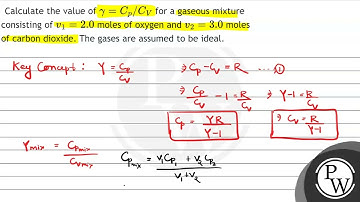 Calculate the value of γ = Cp/CV for a gaseous mixture
consisting of v1 = 2.0 moles of oxygen and v2 = 3.0 moles
of carbon dioxide. The gases are assumed to be ideal.
Key Concept: γ = Cp/Cv ⇒ Cp - Cv = R ... ①
⇒ Cp/Cv - 1 = R/Cv ⇒ γ-1 = R/Cv
Cp = γR/γ-1 ⇒ Cv = R/γ-1
γmix = Cpmix/Cvmix Cpmix = v1Cp1 + v2Cp2/v1+v2
P
W